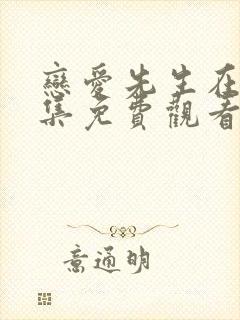 戀愛先生在
集免費觀看
意通明